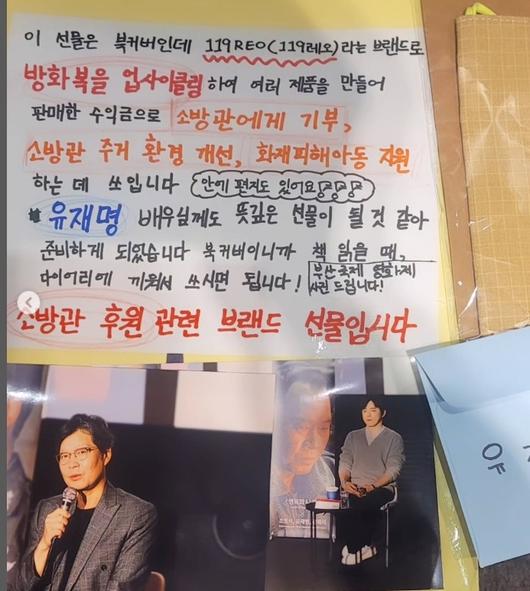 이 선물은 북커버인데 119REO(119레오)라는 브랜드로
방화복을 업사이클링하여 여러 제품을 만들어
판매한 수익금으로 소방관에게 기부,
소방관 주거 환경 개선, 화재피해아동 지원
하는 데 쓰입니다 안에 편지도 있어요
유재명 배우님께도 뜻깊은 선물이 될 것 같아
준비하게 되었습니다 북커버이니까 책 읽을 때,
다이어리에 끼워서 쓰시면 됩니다!
부산국제영화제
사진 드립니다!
소방관 후원 관련 브랜드 선물입니다
유